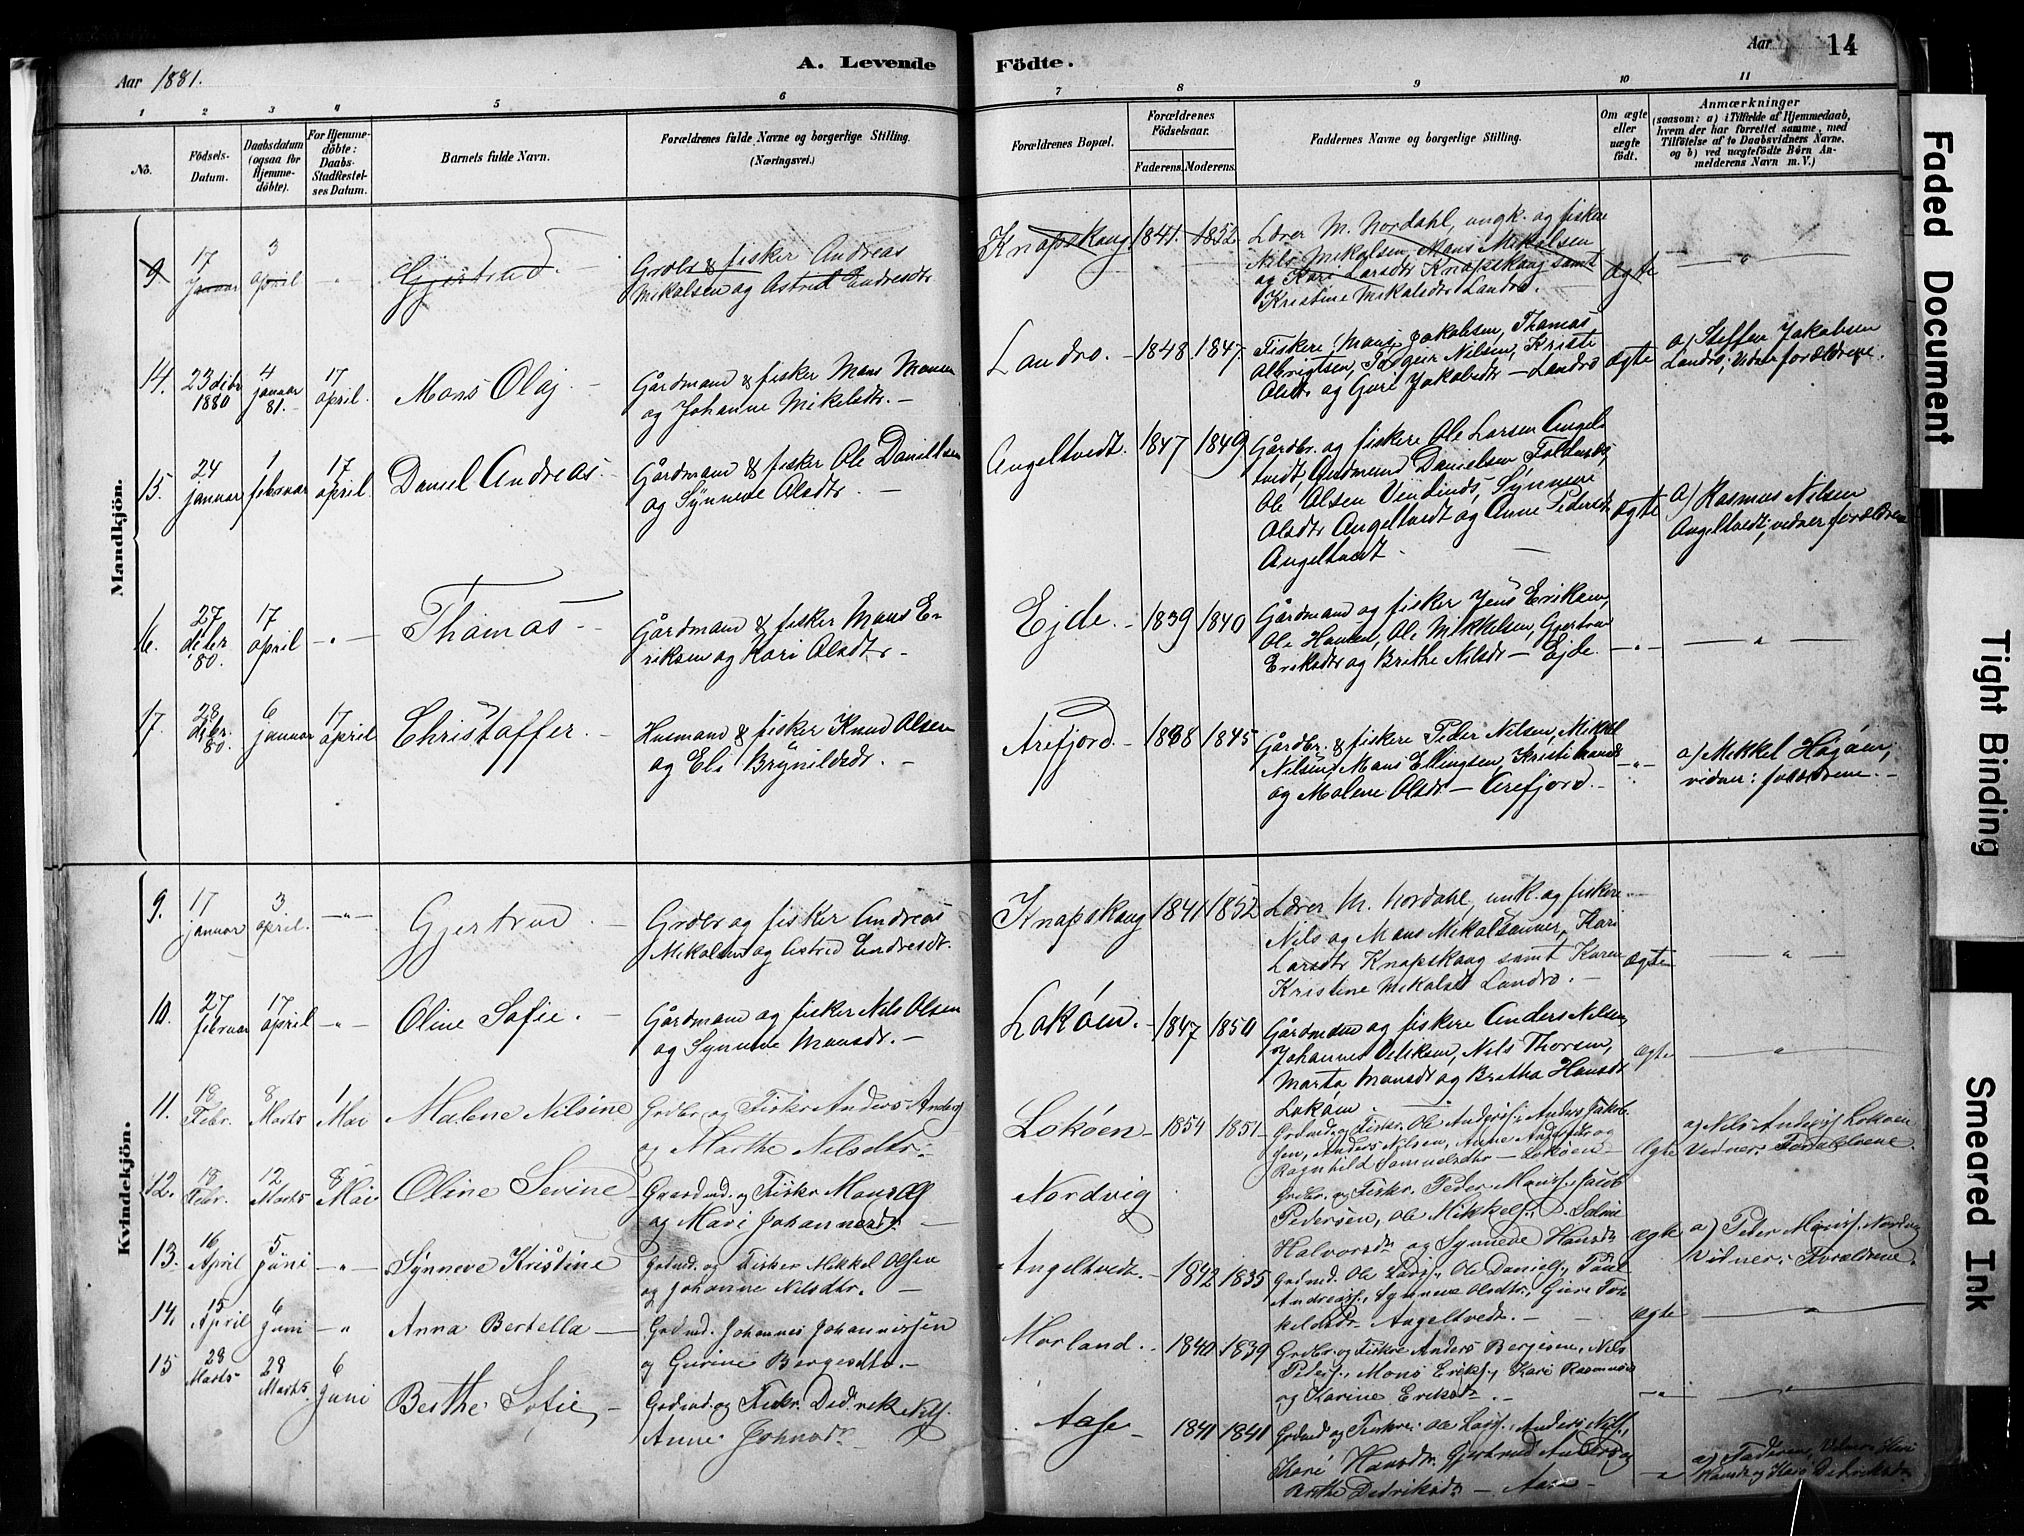 Aar 1881.
A. Levende Födte.
Aar 14
1 2 3 4 5 6 7 8 9 10 11
No.
Födsels-Datum.
Daabsdatum (ogsaa for Hjemmedöbte).
For Hjemmedöbte: Daabs-Stadfæstelses Datum.
Barnets fulde Navn.
Forældrenes fulde Navne og borgerlige Stilling.
(Næringsvei.)
Forældrenes Bopæl.
Forældrenes Födselsaar.
Faderens. Moderens.
Faddernes Navne og borgerlige Stilling.
Om ægte eller uægte födt.
Anmærkninger
(saasom: a) i Tilfælde af Hjemmedaab, hvem der har forrettet samme, med Tilföielse af to Daabsvidners Navne, og b) ved uægtefödte Børn Anmelderens Navn m. V.)
Mandkjön.
9 17 januar 3 april - " - Gjertrud. -
Grdbr & fisker Andreas
Mikalsen og Astrid Endresdtr
Knapskaug 1841. 1852.
Lærer M. Nordahl, ungk. og fiskere
Nils Mikalsen, Mons Mikalsen
og Kari Larsdtr Knapskaug samt
Kristine Mikalsdtr Landro.
ægte - " -
14. 23 dcbr 1880 4 januar 81. - 17 april. Mons Olaj -
Gårdmand & fisker Mons Monsen
og Johanne Mikelsdtr. -
Landro. - 1848. 1847
Fiskere Mons Jakobsen, Thomas
Albrigtsen, Torgeir Nilsen, Kristi
Olsdtr og Guri Jakobsdtr - Landro
ægte
a) Steffen Jakobsen
Landro. Vidner forældrene.
15. 24 januar 1 februar 17 april Daniel Andreas. -
Gårdmand & fisker Ole Danielsen
og Synneve Olsdtr. -
Angeltvedt. 1847 1849
Gårdbr. og fiskere Ole Larsen Angel-
tvedt, Gudmund Danielsen Foldnes,
Ole Olsen Vindenes, Synneve
Olsdtr Angeltvedt og Anne Pedersdtr
Angeltvedt -
ægte
a) Rasmus Nilsen
Angeltvedt, vidner forældrene
16. 27 dcbr 80. 17 april - " - Thomas -
Gårdmand & fisker Mons E-
riksen og Kari Olsdtr. -
Ejde. - 1839 1840
Gårdmand og fisker Jens Eriksen,
Ole Hansen, Ole Mikkelsen, Gjertrud
Eriksdtr og Brithe Nilsdtr - Ejde.
- " - - " -
17. 28 dcbr. 80. 6 januar 17 april Christoffer. -
Husmand & fisker Knud Olsen
og Eli Brynildsdtr. -
Arefjord. - 1838 1845
Gårdbr. & fiskere Peder Nilsen, Mikkel
Nilsen, Mons Ellingsen, Kristi
og Malene Olsdtr - Arefjord. -
- " -
a) Mikkel Højöen,
vidner: forældrene. -
Kvindekjön.
9. 17 januar 3 april. - " - Gjertrud -
Grdbr og fisker Andreas
Mikalsen og Astrid Endresdtr.
Knapskaug 1841 1852
Lærer M. Nordahl, unk. og fiskere
Nils og Mons Mikalsønner, Kari
Larsdtr Knapskaug samt Karen
Kristine Mikalsd Landro. -
ægte - " -
10. 27 februar 17 april - " - Oline Sofie. -
Gårdmand og fisker Nils Olsen
og Synneve Monsdtr. -
Lokøen. - 1847 1850
Gårdmænd og fiskere Anders Nilsen
Johannes Villiksen, Nils Thorsen,
Marta Monsdtr og Bretha Hansdtr
Lokøen. -
ægte - " -
11. 18 Febr. 8 Marts 1 Mai Malene Nilsine
Grdbr. og Fisker Anders Anders
og Marthe Nilsdtr. -
Lokøen - 1854 1851
Grdmd. og Fiskr. Ole Andersf., Anders Jakob-
sen, Anders Nilsen, Anne Andersdtr og
Ragnhild Samuelsdtr - Lokøen
ægte
a) Nils Andersf. Lokøen
Vidner: Forældrene.
12. 18 Febr. 12 Marts 8 Mai Oline Sevine
Gaardmd. og Fiskr Mons Ol
og Mari Johannesdtr. -
Nordvig
Grdbr. og Fiskr. Peder Monsf., Jacob
Pedersen, Ole Mikkelf., Saline
Halvorsdtr og Synneve Hansdtr
ægte
a) Peter Monsf. Nordvig
Vidner: Forældrene.
13. 16 April 5 Juni - " - Synneve Kristine
Grdmd. og Fisker Mikkel Olsen
og Johanne Nilsdtr. -
Angeltvedt. - 1842 1835
Grdmd. Ole Larsf., Ole Danielf., Paul
Andreasf., Synneve Olsdtr., Guri Tor-
kelsdtr Angeltvedt. -
ægte - " -
14. 15 April 6 Juni - " Anna Bertella -
Grdmd. Johannes Johannessen
og Gurine Børgesdtr. -
Morland. - 1840 1839
Grdbr. og Fiskre Anders Børjesen, Nils
Petersf., Mons Eriksf., Kari Rasmusdtr
og Karine Eriksdtr. -
- " - - " -
15 28 Marts 28 Marts. 6 Juni Berthe Sofie
Grdmd. og Fiskr. Didrik Nilsf.
Anne Johnsdtr
Aase - 1841 1841
Grdmd og Fiskre: Ole Larsf., Anders Nilsf.,
Kari Hansdtr. Gjertrud Andersd og
Berthe Didriksdtr. - Aase -
- " -
a) Faderen, Vidner: Kari
Hansdtr og Kari Didriksdtr
Faded Document
Tight Binding
Smeared Ink